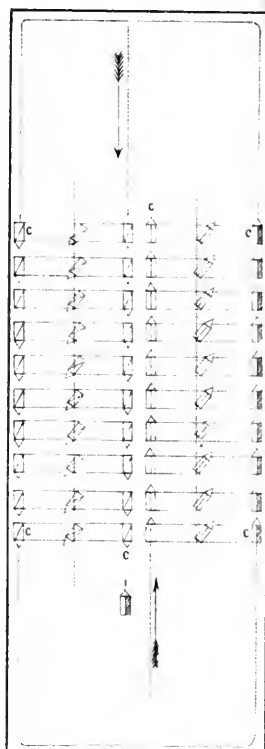 C
C C
C C
C